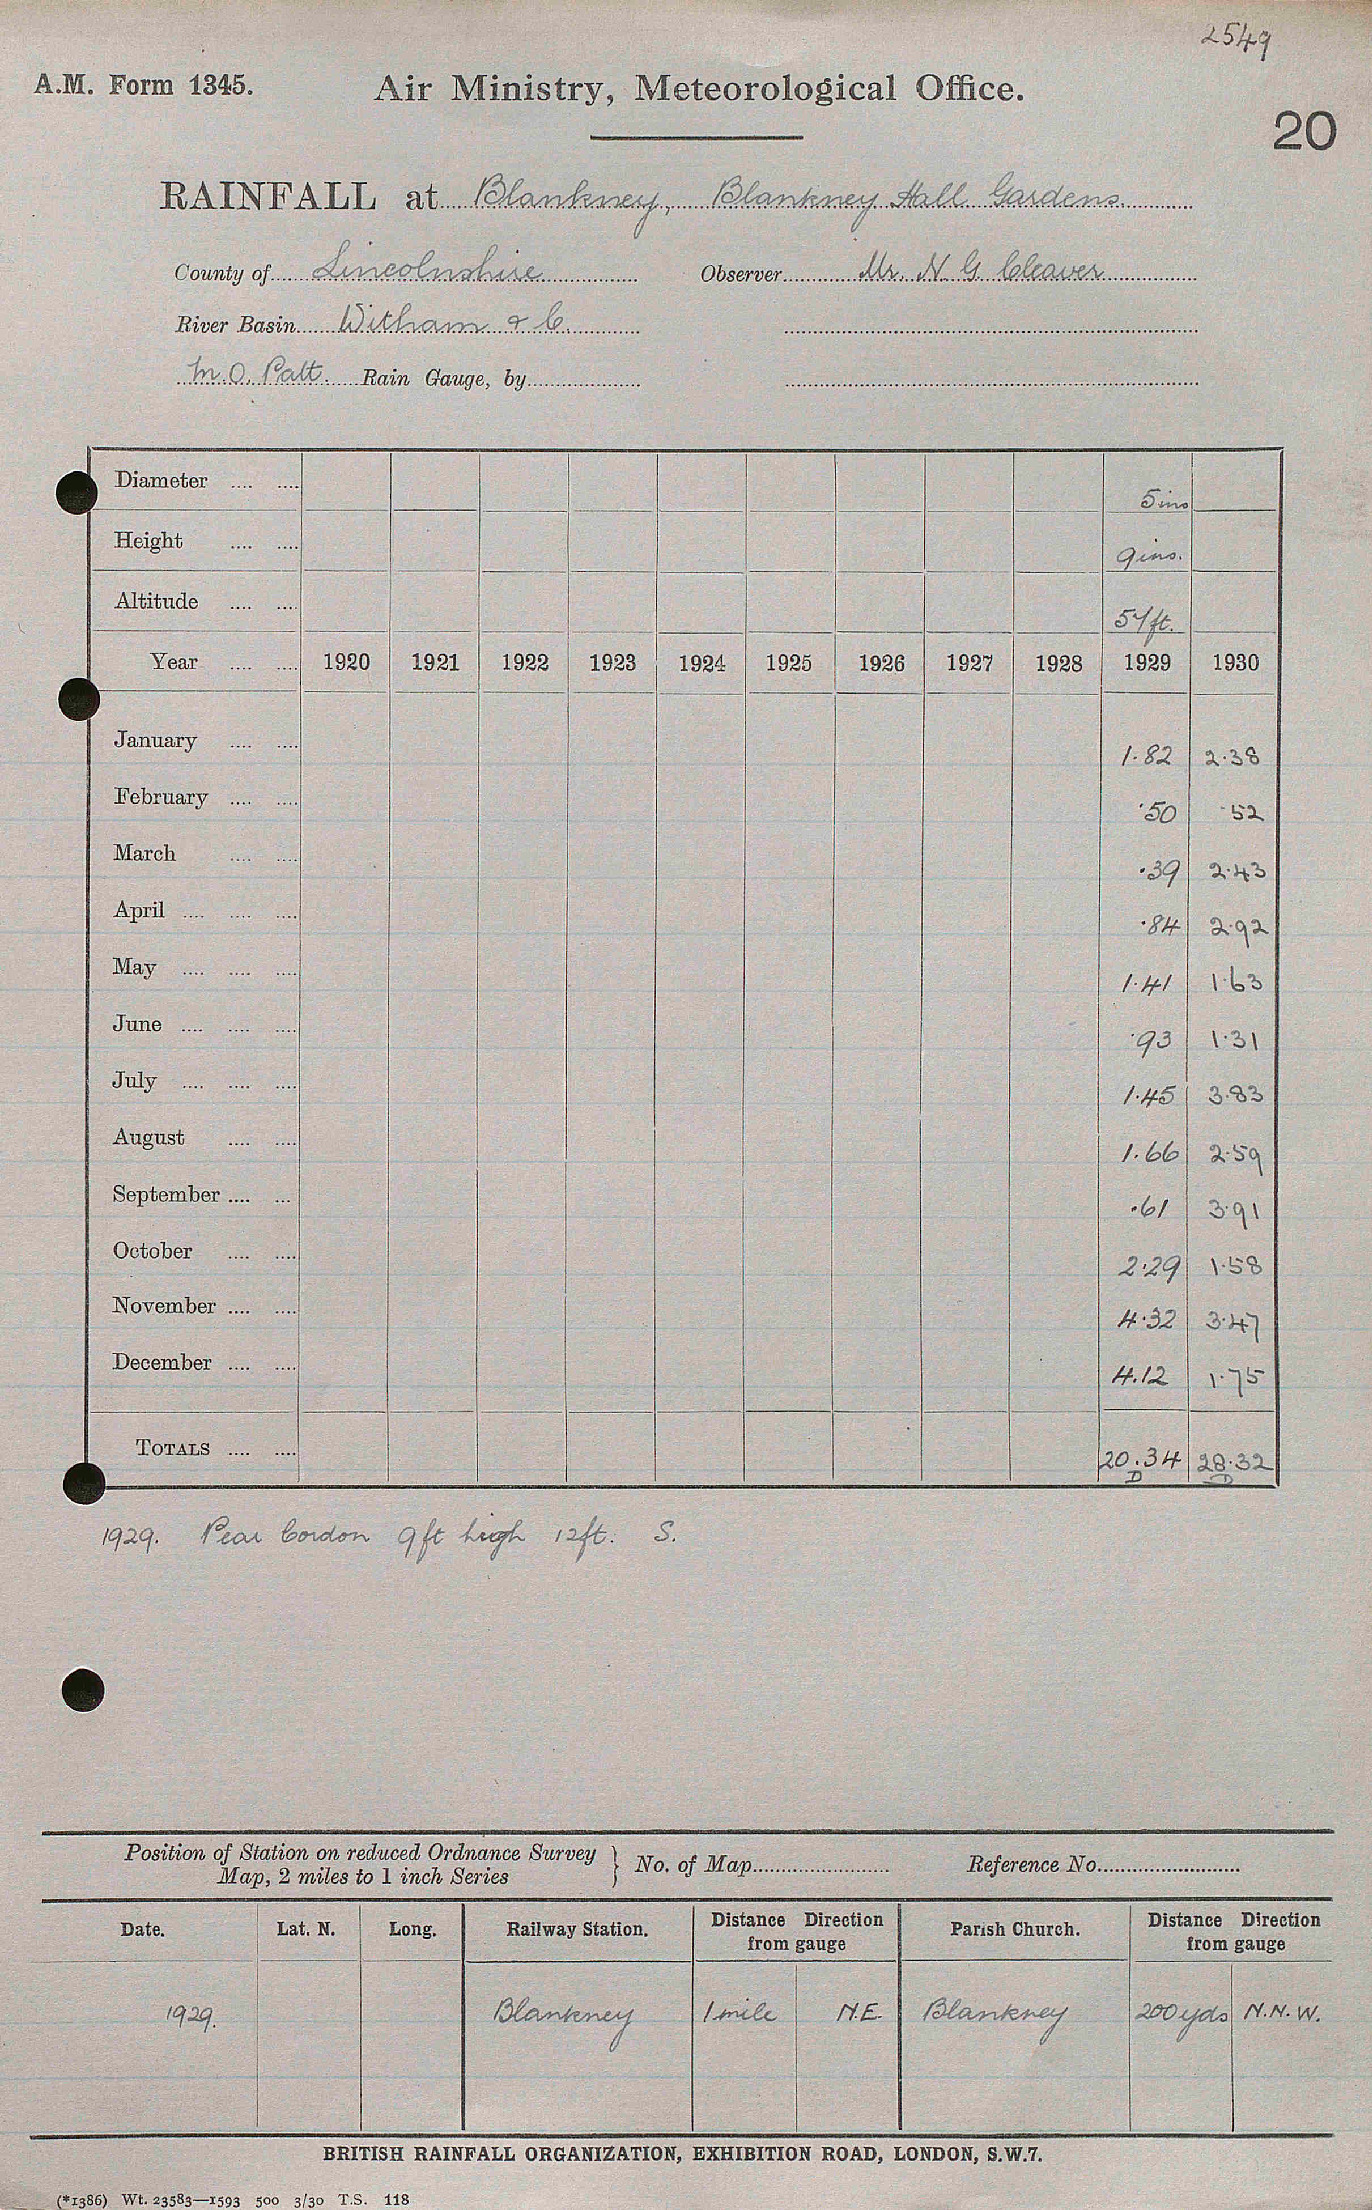 2549
A.M. Form 1345. Air Ministry, Meteorological Office.
20
RAINFALL at Blankney, Blankney Hall Gardens.
County of Lincolnshire Observer Mr. N. G. Cleaver
River Basin Witham & C.
M.O. Patt. Rain Gauge, by
Diameter .... .... 5ins
Height .... .... 9ins.
Altitude .... .... 57ft.
Year .... .... 1920 1921 1922 1923 1924 1925 1926 1927 1928 1929 1930
January .... .... 1.82 2.38
February .... .... .50 .52
March .... .... .39 2.43
April .... .... .... .84 2.92
May .... .... .... 1.41 1.63
June .... .... .... .93 1.31
July .... .... .... 1.45 3.83
August .... .... 1.66 2.59
September .... ... .61 3.91
October .... .... 2.29 1.58
November .... .... 4.32 3.47
December .... .... 4.12 1.75
TOTALS .... .... 20.34 28.32
D D
1929. Pear Cordon 9ft high 12ft. S.
Position of Station on reduced Ordnance Survey
Map, 2 miles to 1 inch Series } No. of Map Reference No.
Date. Lat. N. Long. Railway Station. Distance Direction from gauge Parish Church. Distance Direction from gauge
1929. Blankney 1 mile N.E. Blankney 200 yds N.N.W.
BRITISH RAINFALL ORGANIZATION, EXHIBITION ROAD, LONDON, S.W.7.
(*1386) Wt. 23583—1593 500 3/30 T.S. 118